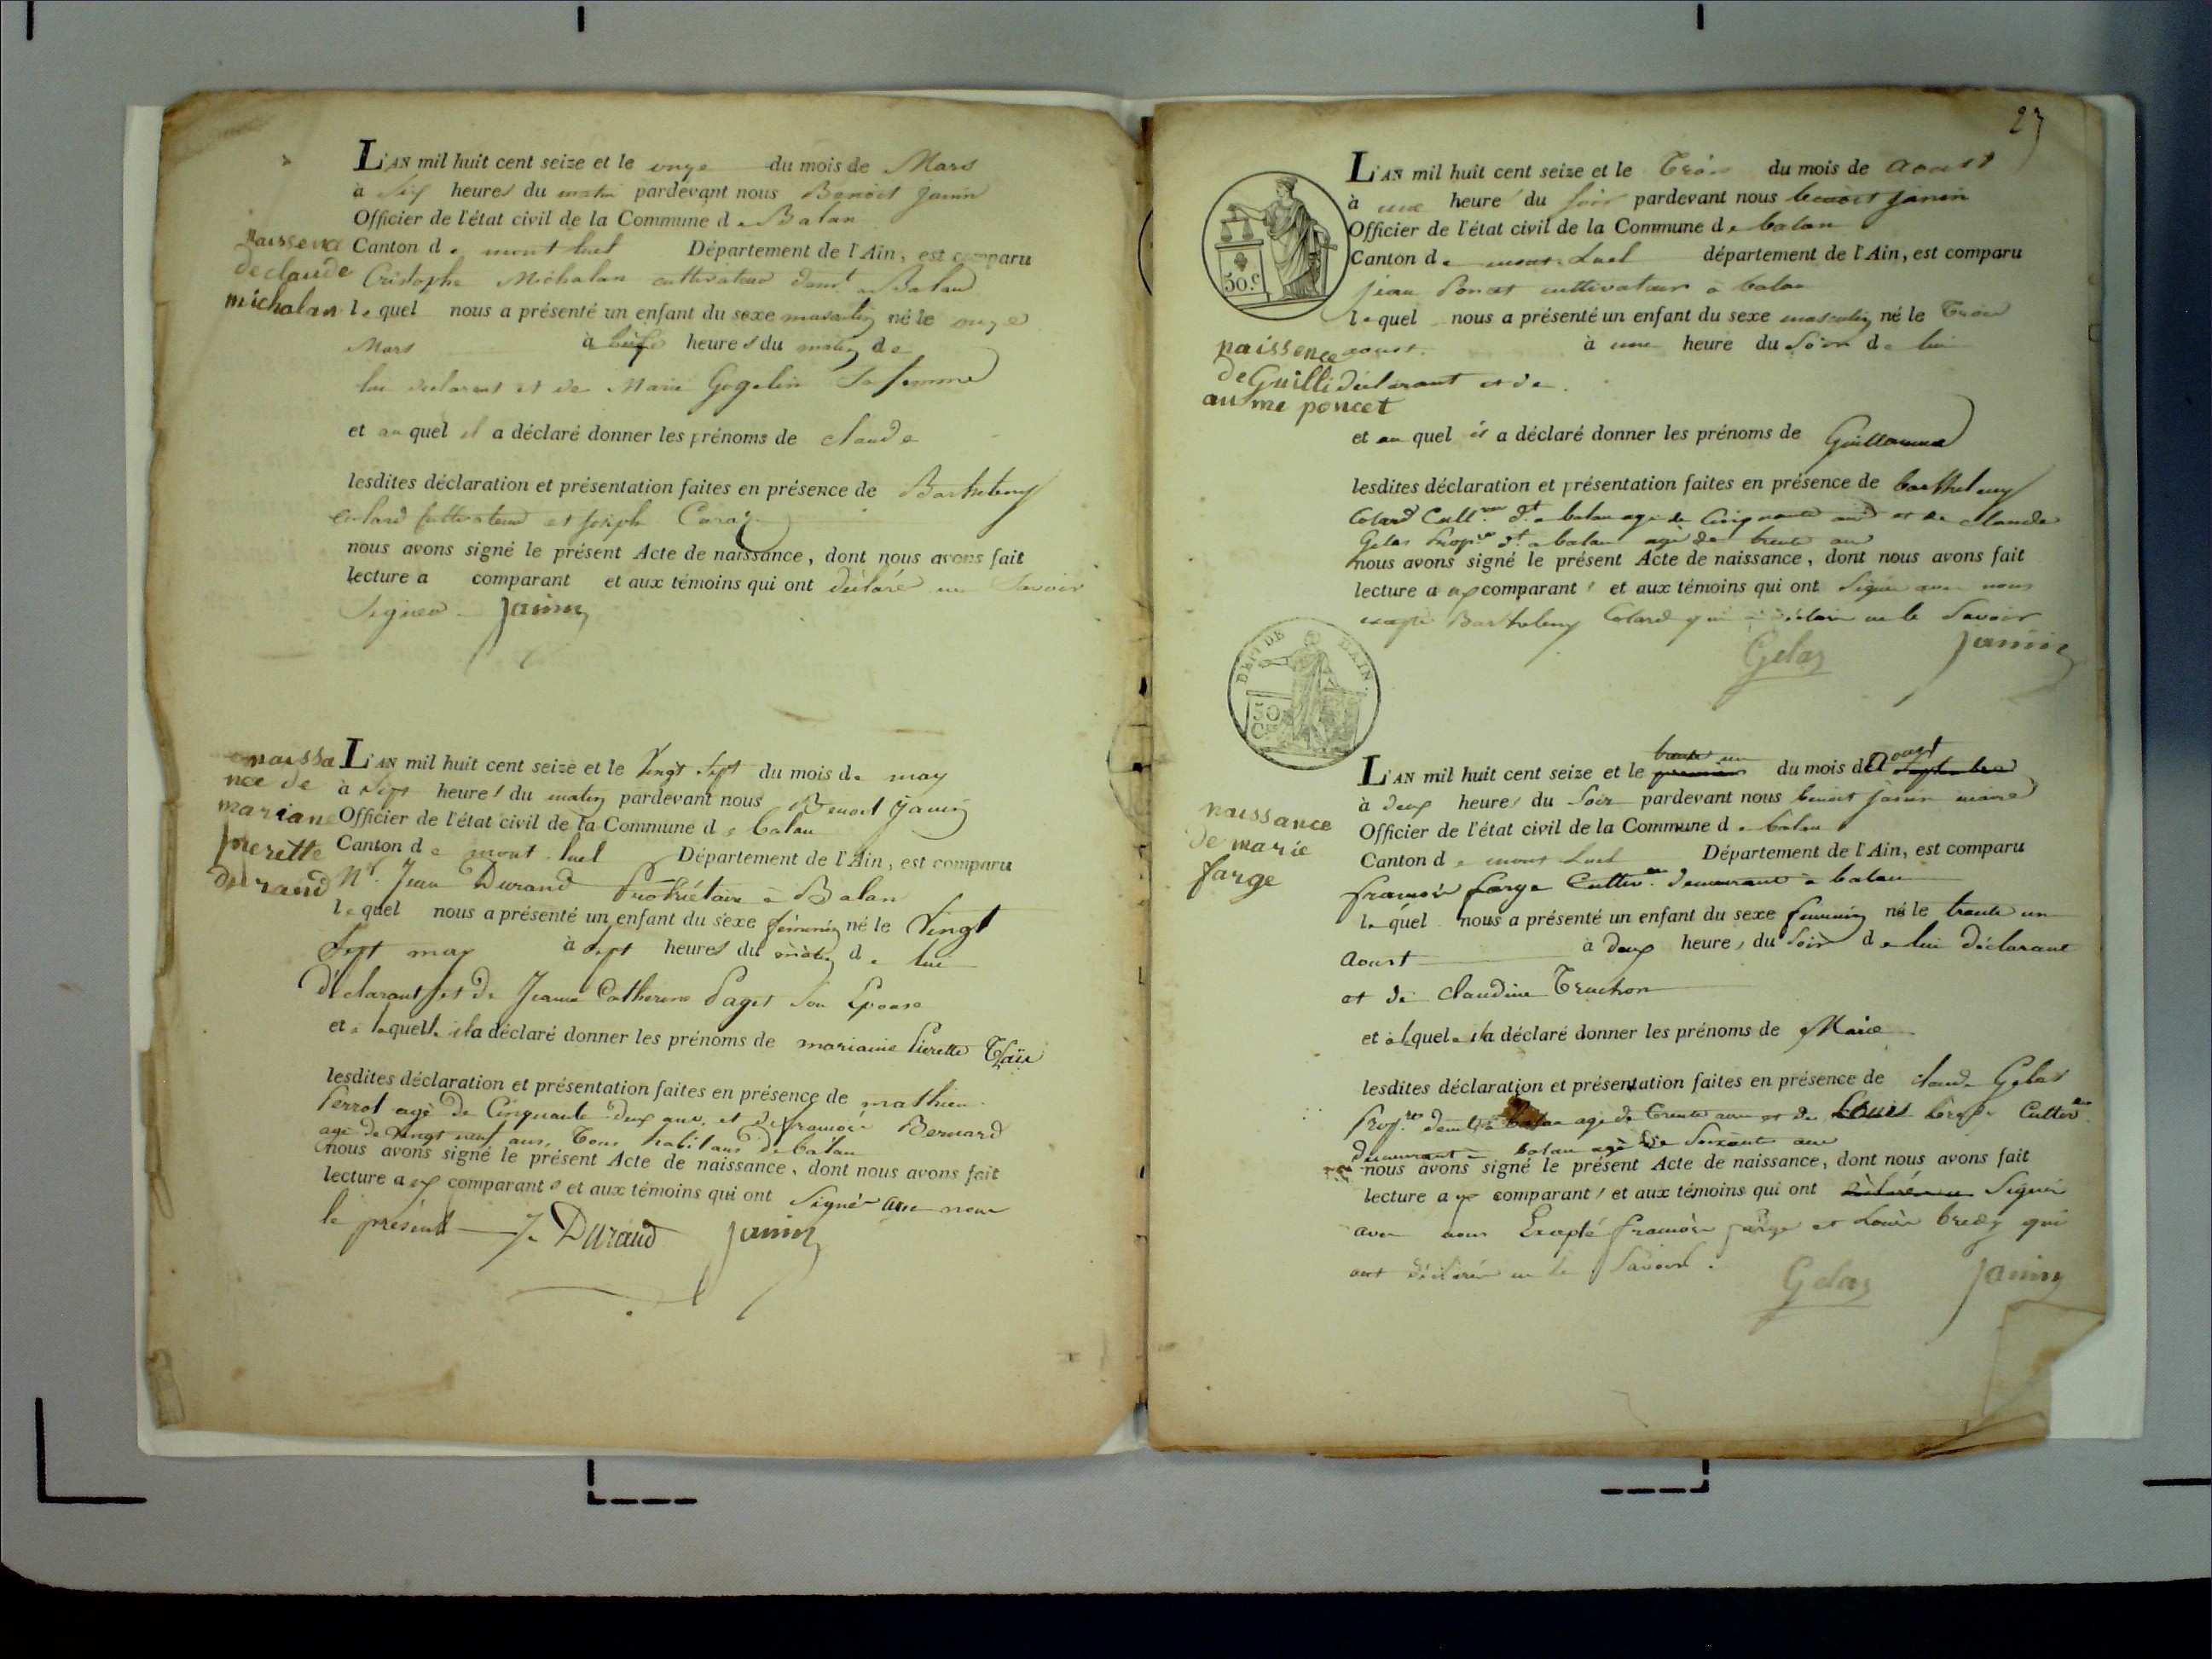 L'AN mil huit cent seize et le onze du mois de Mars
à Six heures du matin pardevant nous Benoit Janin
Officier de l'état civil de la Commune de Balan
naissence
de claude
michalan
Canton de mont luel Département de l'Ain, est comparu
Cristophe Michalan cultivateur demt a Balan
lequel nous a présenté un enfant du sexe masculin né le onze
Mars à heures du matin de
lui declarant et de Marie Gogelin Sa femme
et au quel il a déclaré donner les prénoms de claude
lesdites déclaration et présentation faites en présence de Barthelemy
Colard Cultivateur et Joseph
nous avons signé le présent Acte de naissance, dont nous avons fait
lecture a comparant et aux témoins qui ont déclaré ne Savoir
Signer Janin
naissa
nce de
mariane
pierette
durand
L'AN mil huit cent seize et le Vingt Sept du mois de may
à Sept heures du matin pardevant nous Benoit Janin
Officier de l'état civil de la Commune de balan
Canton de mont luel Département de l'Ain, est comparu
Mr. Jean Durand Propriétaire à Balan
lequel nous a présenté un enfant du sexe féminin né le Vingt
Sept may à Sept heures du matin de lui
déclarant et de Jeanne Catherine Paget Son Epouse
et a laquelle il a déclaré donner les prénoms de mariane Pierette
lesdites déclaration et présentation faites en présence de mathieu
Perrot agé de Cinquante deux ans, et de francois Bernard
agé de vingt neuf ans, Tous habitans de balan
nous avons signé le présent Acte de naissance, dont nous avons fait
lecture aux comparants et aux témoins qui ont Signé avec nous
le présent J. Durand Janin
27
L'AN mil huit cent seize et le Trois du mois de aoust
à une heure du Soir pardevant nous benoit Janin
Officier de l'état civil de la Commune de balan
Canton de mont Luel département de l'Ain, est comparu
jean Poncet cultivateur a balan
lequel nous a présenté un enfant du sexe masculin né le Trois
aoust à une heure du Soir de lui
50.c
naissence
de Guilli
au me poncet
déclarant et de
et au quel il a déclaré donner les prénoms de Guillaume
lesdites déclaration et présentation faites en présence de barthelemy
Colard Cultr. dt a balan agé de Cinquante ans et de claude
Gelas Propre dt a balan agé de trente ans
nous avons signé le présent Acte de naissance, dont nous avons fait
lecture aux comparants et aux témoins qui ont Signé avec nous
excepté Barthelemy Colard qui a déclaré ne le Savoir
Gelas Janin
DEPT DE L'AIN.
50
CES
trente un aoust
L'AN mil huit cent seize et le premier du mois de Septembre
à deux heures du Soir pardevant nous benoit Janin maire
Officier de l'état civil de la Commune de balan
naissance
de marie
farge
Canton de mont Luel Département de l'Ain, est comparu
francois farge Cultivr. demeurant à balan
lequel nous a présenté un enfant du sexe feminin né le trente un
Aoust à deux heures du Soir de lui déclarant
et de Claudine Truchon
et a lquel il a déclaré donner les prénoms de Marie
lesdites déclaration et présentation faites en présence de claude Gelas
Propre demt a balan agé de Trente ans et de Louis Cultivr
demeurant a balan agé de Soixante ans
nous avons signé le présent Acte de naissance, dont nous avons fait
lecture aux comparants et aux témoins qui ont déclaré ne Signer
avec nous Excepté francois farge et Louis qui
ont déclaré ne le Savoir.
Gelas Janin